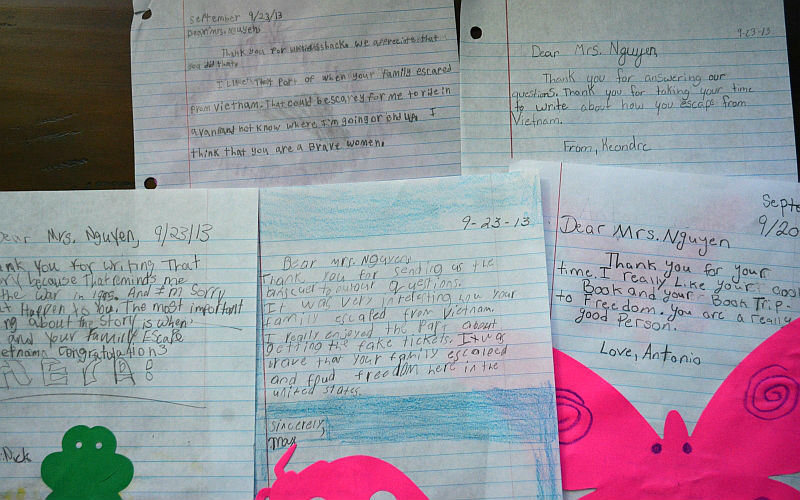 september 9/23/13
Dear Mrs. Nguyen,
Thank you for we appreciate that
you did that.
I Liked That Part of when your family escaped
from Vietnam. That could be scarey for me to ride in
a van and not know where I'm going or end up. I
think that you are a Brave women.
9-23-13
Dear Mrs. Nguyen,
Thank you for answering our
questions. Thank you for taking your time
to write about how you escape from
Vietnam.
From, Keondre
ear Mrs. Nguyen, 9/23/13
ank You For writing That
ory because That reminds me
the war in And I'm Sorry
at Happen to You. The most important
ng about the Story is when
and your Family Escape
etnamn Congratulation3
Nick
9-23-13
Dear mrs. Nguyen
Thank you for sending us the
answer to our questions.
It was very interesting how your
family escaped from Vietnam.
I really enjoyed the part about
getting the fake tickets. It was
brave that your family escaped
and foud freedom here in the
united states.
sincerely,
Max
Septe
9/20
Dear Mrs. Nguyen
Thank you for your
time. I really Like your cool
Book and your Book Trip
to Freedom. you are a really
good Person.
Love, Antonio